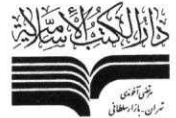 دار الكتب الإسلامية
مرتضى آخوندى
تهران - بازار سلطانى